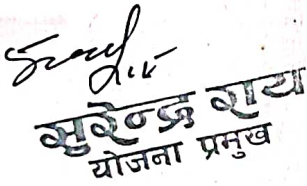 सुरेन्द्र राय
योजना प्रमुख